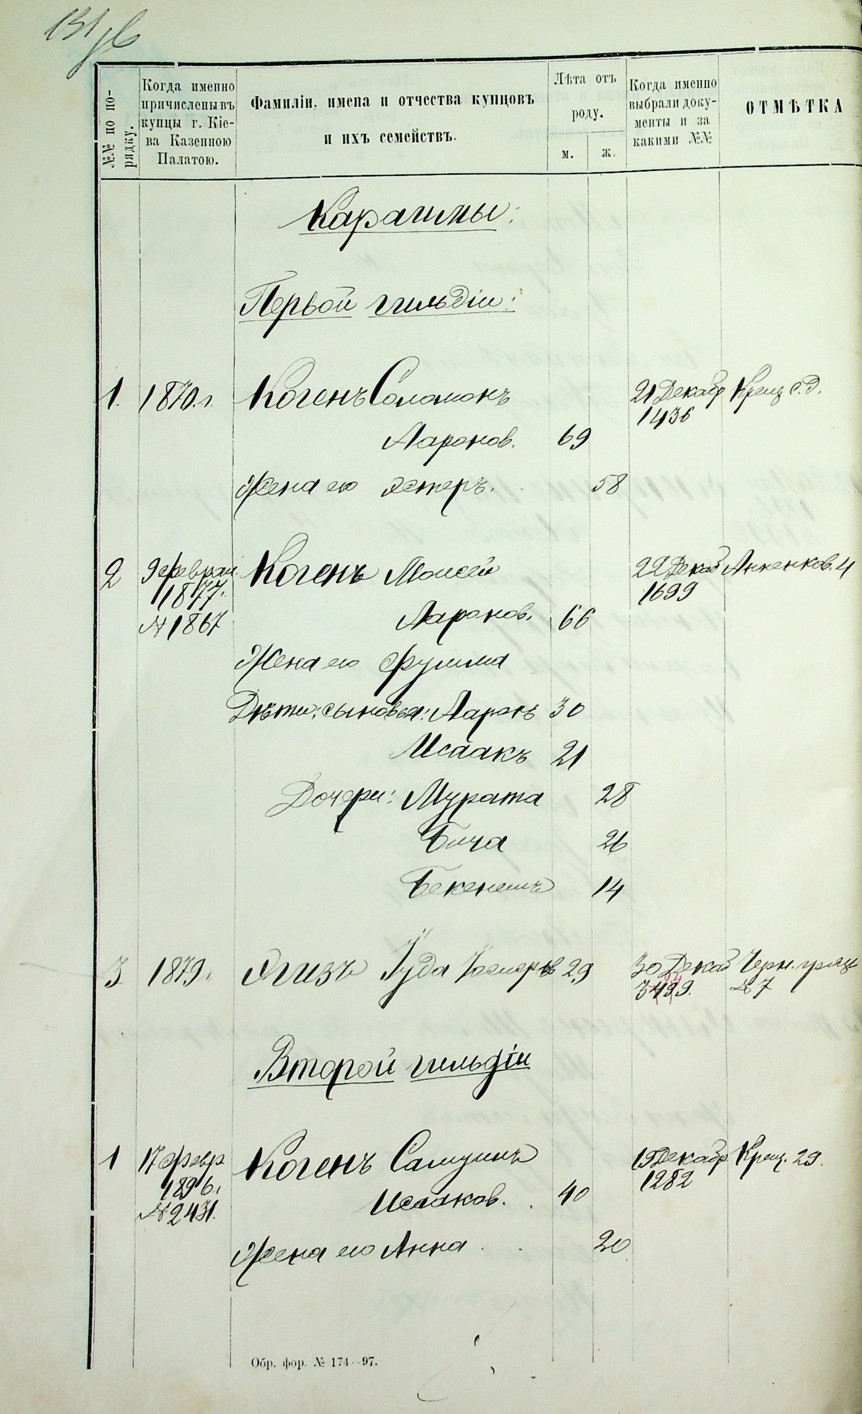 №№ по по-
рядку.
Когда именно
причислены въ
купцы г. Кіе-
ва Казенною
Палатою.
Фамиліи, имена и отчества купцовъ
и ихъ семействъ.
Лѣта отъ
роду.
м. ж.
Когда именно
выбрали доку-
менты и за
какими №№
ОТМѢТКА
Караимы:
Первой гильдіи:
1. 1870 г. Когенъ Соломонъ 21 Декабр Крещ с.д.
1436
Ааронов. 69
Жена его Эстеръ. 58
2 9 феврал Когенъ Моисей 22 Декаб Анненков. 4
1877. 1699
№ 1867 Ааронов. 66
Жена его
Дѣти: сыновья: Ааронъ 30
Исаакъ 21
Дочери: Мурата 28
Бича 26
Бекенешъ 14
3 1879. Ягизъ Іуда 29 30 Декаб
№ 7
Второй гильдіи
1 17 февр Когенъ Самуилъ 19 Декабр Крещ. 29.
1896. 1282
№ 2431. Исааков. 40
Жена его Анна 20
Обр. фор. № 174—97.